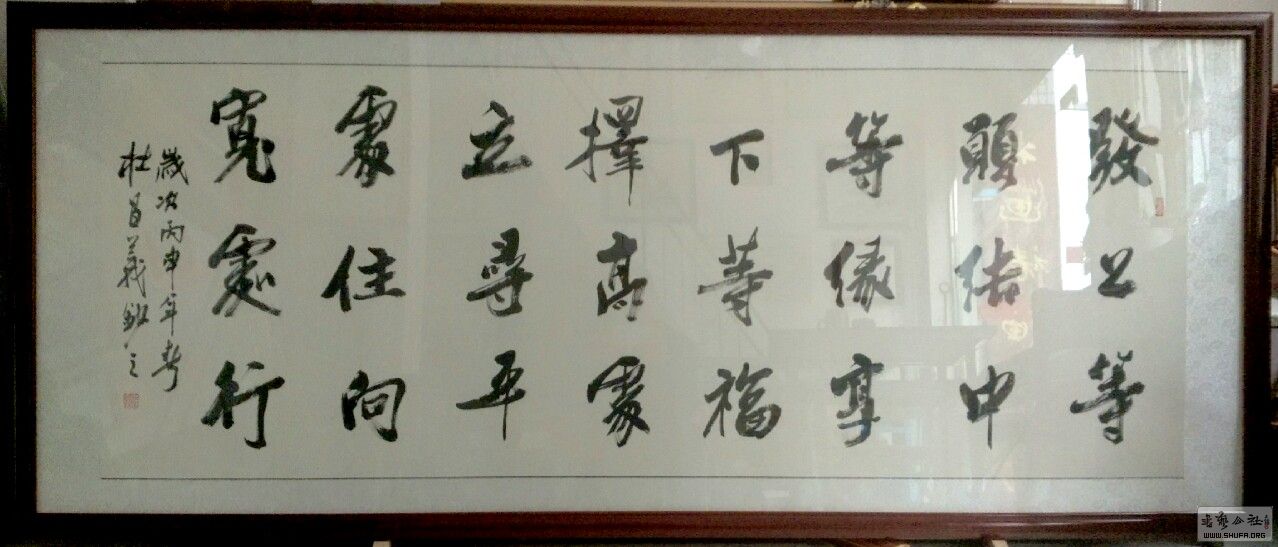 發上等
願結中
等緣享
下等福
擇高處
立尋平
處住向
寬處行
歲次丙申年春
杜昌義
書藝公社
WWW.SHUFA.ORG